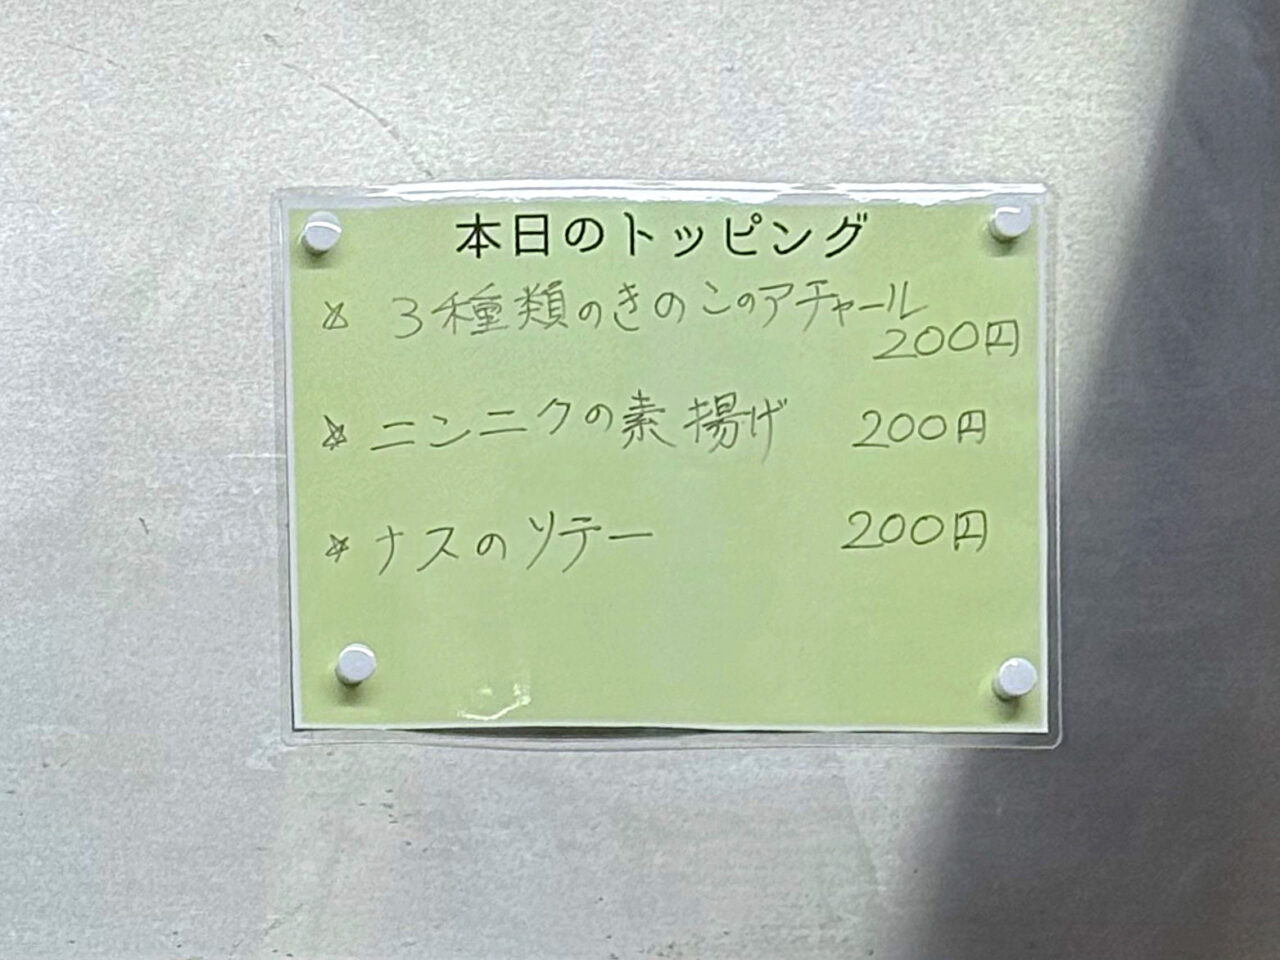 本日のトッピング
☆ 3種類のきのこのアチャール
200円
☆ ニンニクの素揚げ 200円
☆ ナスのソテー 200円